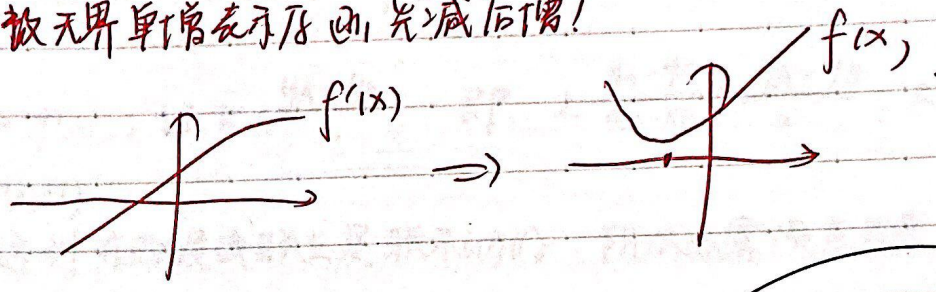 故无界单增表示原函, 先减后增!
f'(x)
f(x)